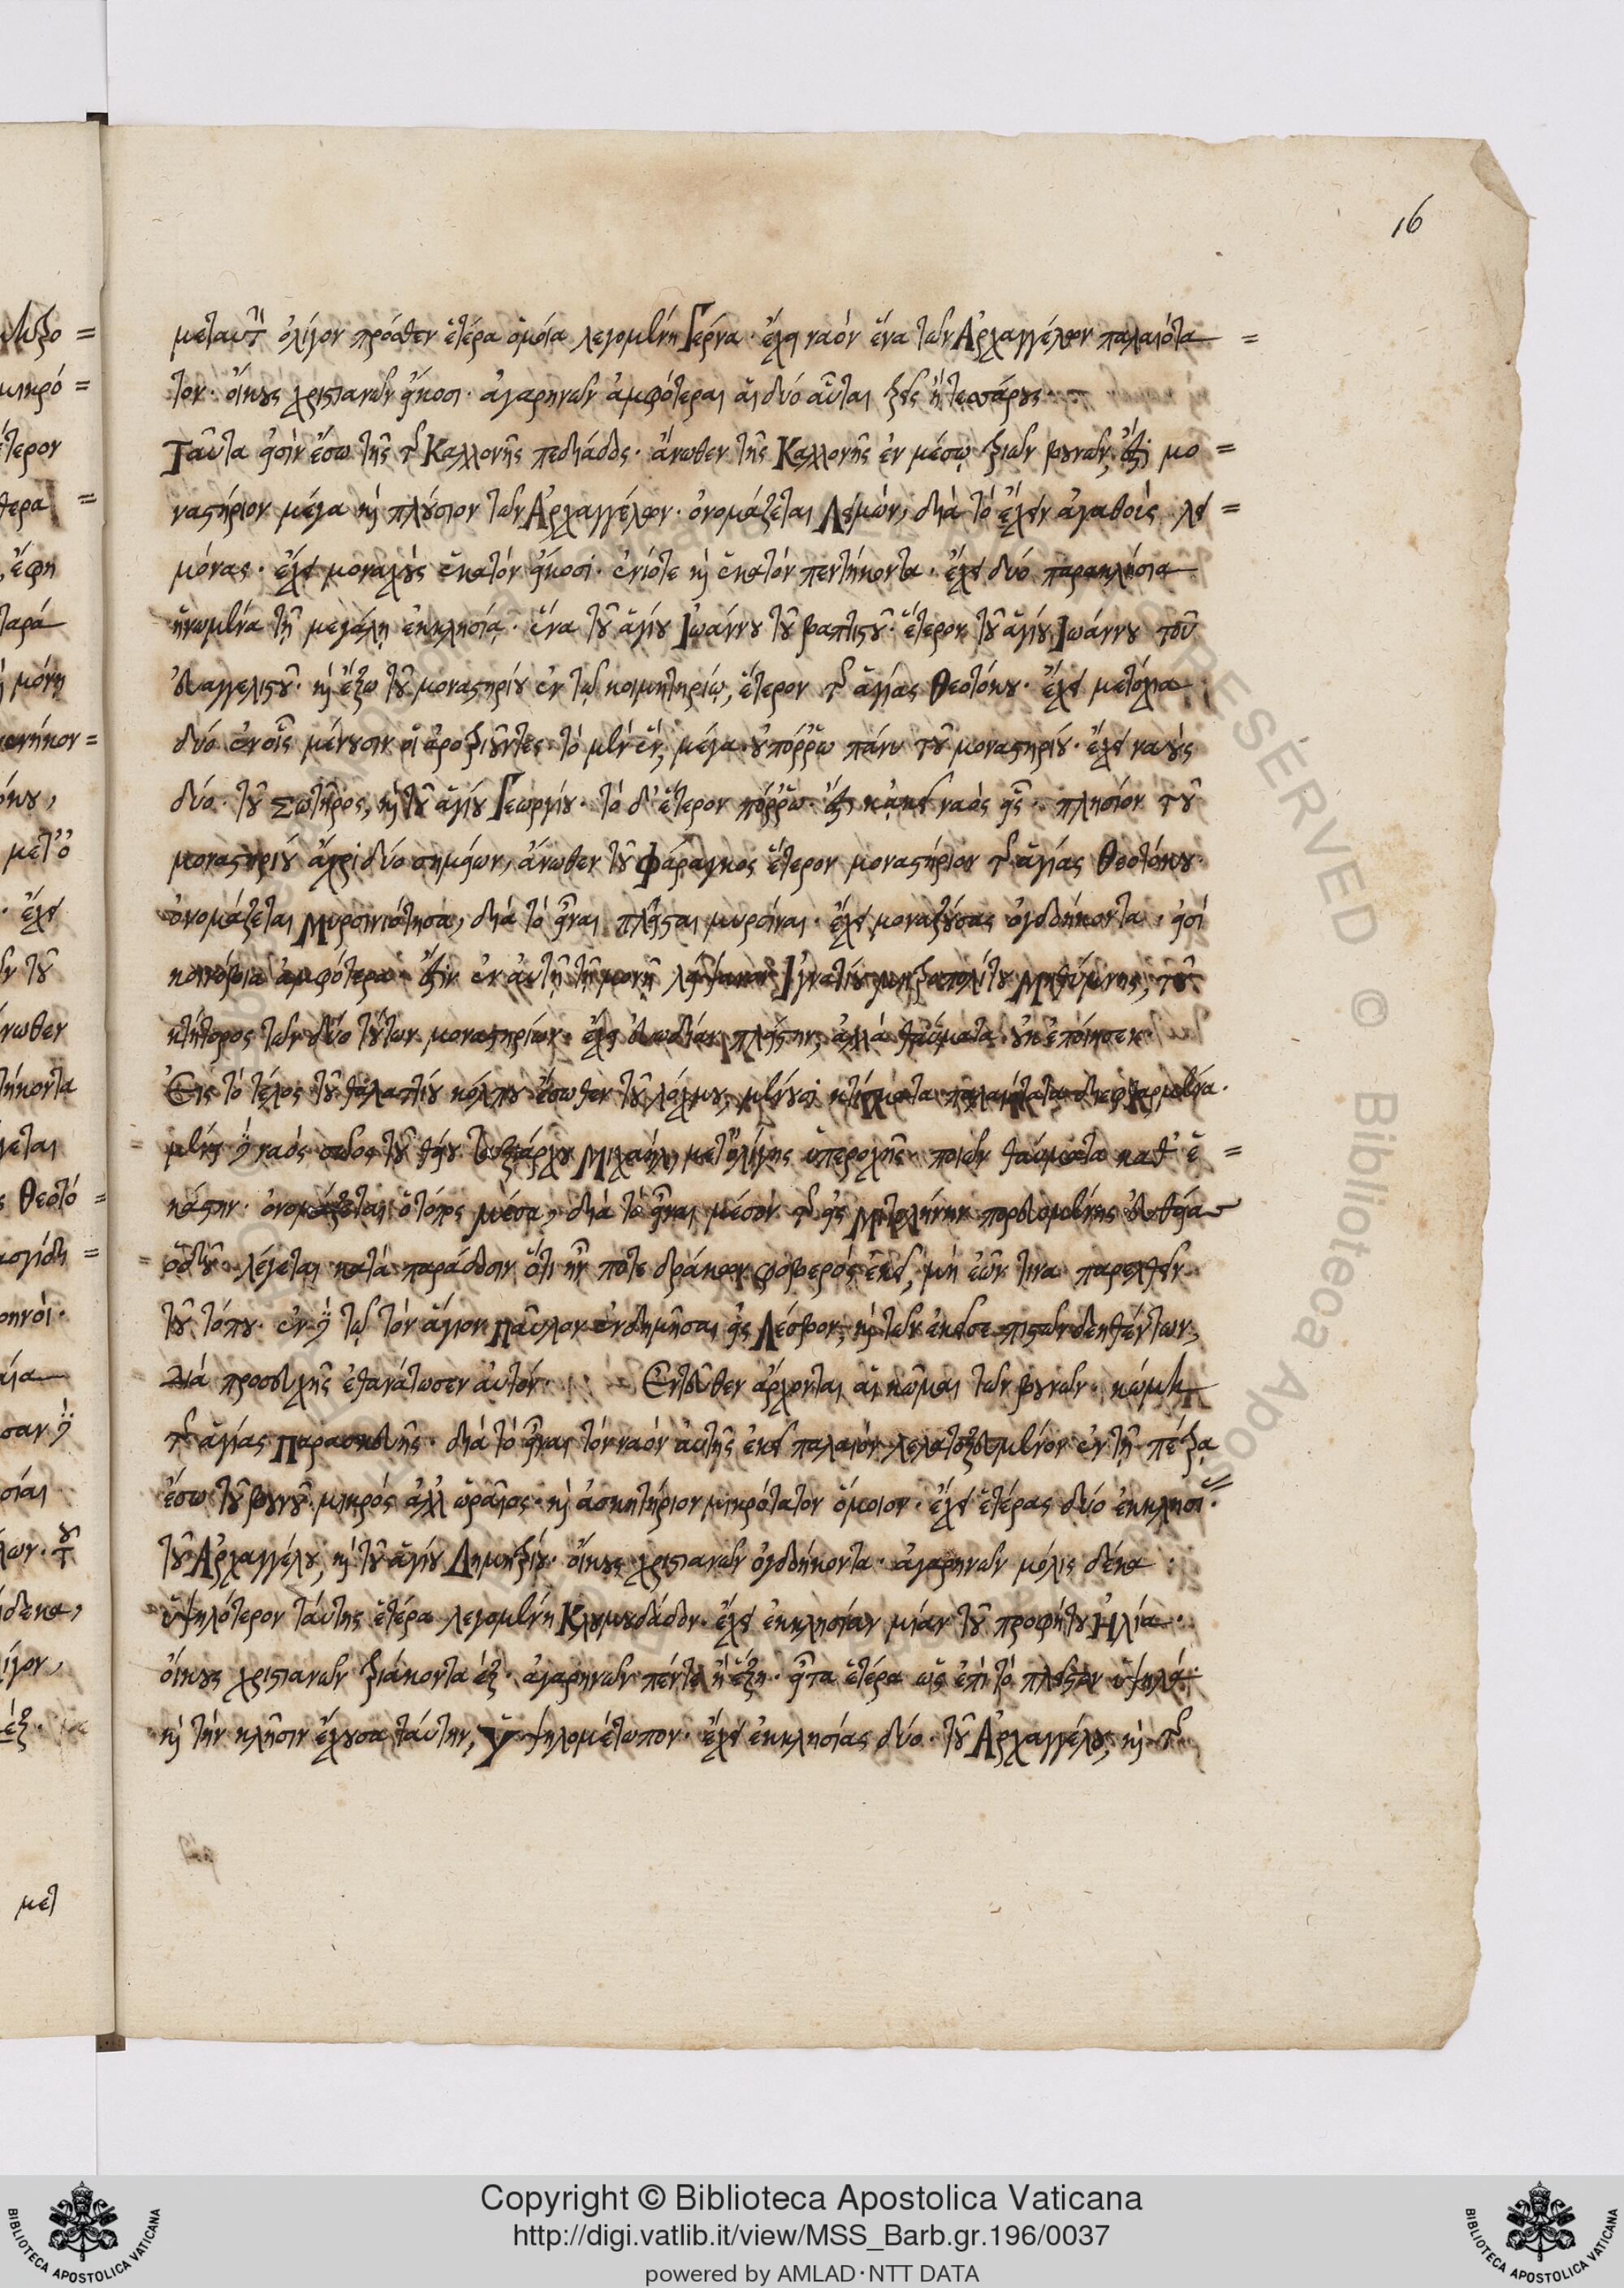 16
μεταυτ ὀλίγον πρόσθεν ἑτέρα ὁμοία λεγομένη Γέρνα · ἔχει ναόν ἕνα τῶν Ἀρχαγγέλων παλαιότα=
τον · οἴκους χριστιανῶν εἴκοσι · ἀγαρηνῶν ἀμφότεραι αἱ δύο αὗται τρεῖς ἢ τεσσάρους ·
Ταῦτα εἰσίν ἔσω τῆς τῆς Καλλονῆς πεδιάδος · ἄνωθεν τῆς Καλλονῆς ἐν μέσῳ τριῶν βουνῶν, ἐστί μο=
ναστήριον μέγα καὶ πλούσιον τῶν Ἀρχαγγέλων · ὀνομάζεται Λειμών, διά τό ἔχειν ἀγαθούς λει=
μῶνας · ἔχει μοναχούς ἑκατόν εἴκοσι · ἐνίοτε καὶ ἑκατόν πεντήκοντα · ἔχει δύο παρακλήσια
ἡνωμένα τῇ μεγάλῃ ἐκκλησίᾳ · ἕνα τοῦ ἁγίου Ἰωάννου τοῦ βαπτιστοῦ · ἕτερον τοῦ ἁγίου Ἰωάννου τοῦ
εὐαγγελιστοῦ · καὶ ἔξω τοῦ μοναστηρίου ἐν τῷ κοιμητηρίῳ, ἕτερον τῆς ἁγίας Θεοτόκου · ἔχει μετόχια
δύο ἐν οἷς μένουσιν οἱ ἀροτριῶντες · τό μέν ἕν, μέγα · οὐ πόρρω πάνυ τοῦ μοναστηρίου · ἔχει ναούς
δύο · τοῦ Σωτῆρος, καὶ τοῦ ἁγίου Γεωργίου · τό δ' ἕτερον πόρρω · ἔστι κἀκεῖ ναός εἷς · πλησίον τοῦ
μοναστηρίου ἄχρι δύο σημείων, ἄνωθεν τοῦ Φάραγκος ἕτερον μοναστήριον τῆς ἁγίας Θεοτόκου ·
ὀνομάζεται Μυρσινιώτησα, διά τό εἶναι πλεῖσται μυρσίναι · ἔχει μοναζούσας ὀγδοήκοντα · εἰσί
κοινόβια ἀμφότερα · ἔστιν ἐν αὐτῇ τῇ μονῇ λείψανον Ἰγνατίου μητροπολίτου Μηθύμνης, τοῦ
κτήτορος τῶν δύο τούτων μοναστηρίων · ἔχει εὐωδίαν πλείστην, ἀλλά θαύματα οὐκ ἐποίησεν ·
Εἰς τό τέλος τοῦ θαλαττίου κόλπου ἔσωθεν τοῦ λόχμου, μένουσι κτίσματα παλαιότατα διεφθαρμένα ·
μένει καὶ ναός σῶος τοῦ θείου ταξιάρχου Μιχαήλ, μετ' ὀλίγης ὑπεροχῆς · ποιῶν θαύματα καθ' ἑ=
κάστην · ὀνομάζεται ὁ τόπος μέσα, διά τό εἶναι μέσον τῆς εἰς Μιτυλήνην πορευομένης εὐθείας
ὁδοῦ · λέγεται κατά παράδοσιν ὅτι ἦν ποτε δράκων φοβερός ἐκεῖ, μή ἐῶν τινα παρελθεῖν
τοῦ τόπου · ἐν καὶ τῷ τόν ἅγιον Παῦλον ἐνδημῆσαι εἰς Λέσβον, καὶ τῶν ἐκεῖσε πιστῶν δεηθέντων,
διά προσευχῆς ἐθανάτωσεν αὐτόν · Ἐντεῦθεν ἄρχονται αἱ κῶμαι τῶν βουνῶν · κώμη
τῆς ἁγίας Παρασκευῆς · διά τό εἶναι τόν ναόν αὐτῆς ἐκεῖ παλαιόν λελατομευμένον ἐν τῇ πέτρᾳ
ἔσω τοῦ βουνοῦ · μικρός ἀλλ' ὡραῖος · καὶ ἀσκητήριον μικρότατον ὅμοιον · ἔχει ἑτέρας δύο ἐκκλησίας
τοῦ Ἀρχαγγέλου, καὶ τοῦ ἁγίου Δημητρίου · οἴκους χριστιανῶν ὀγδοήκοντα · ἀγαρηνῶν μόλις δέκα ·
ὑψηλότερον ταύτης ἑτέρα λεγομένη Κλουμουδάδον · ἔχει ἐκκλησίαν μίαν τοῦ προφήτου Ἠλία ·
οἴκους χριστιανῶν τριάκοντα ἕξ · ἀγαρηνῶν πέντε ἢ ἕξη · εἶτα ἑτέρα ὡς ἐπί τό πλεῖστον ὑψηλά ·
καὶ τήν κλῆσιν ἔχουσα ταύτην, Ὑψηλομέτωπον · ἔχει ἐκκλησίας δύο · τοῦ Ἀρχαγγέλου, καὶ τῆς
Copyright © Biblioteca Apostolica Vaticana
http://digi.vatlib.it/view/MSS_Barb.gr.196/0037
powered by AMLAD·NTT DATA